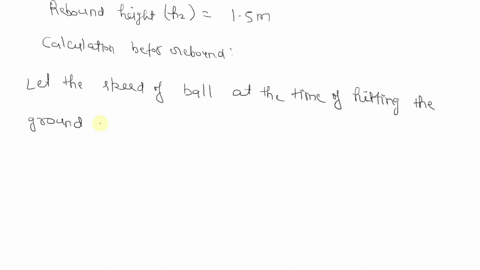 Rebound height (h2) = 1.5m
Calculation befor rebound:
Let the speed of ball at the time of hitting the
ground